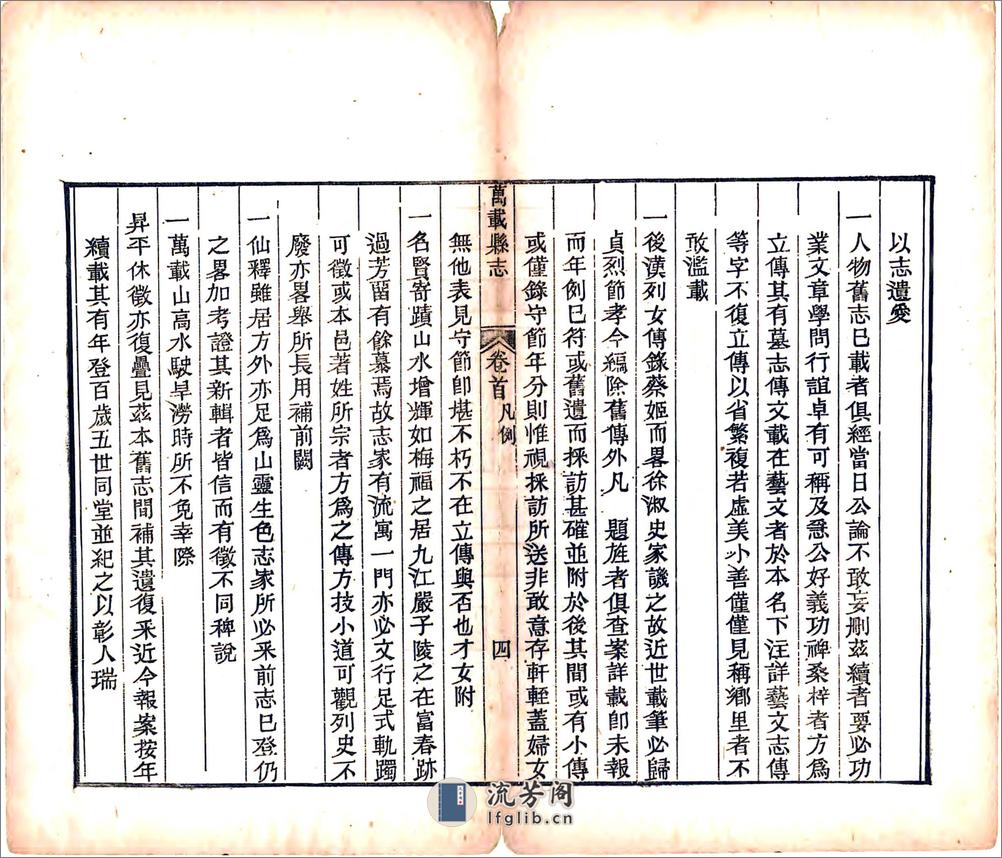 以志遺愛
一人物舊志已載者俱經當日公論不敢妄刪茲續者要必功
業文章學問行誼卓有可稱及急公好義功裨桑梓者方為
立傳其有墓志傳文載在藝文者於本名下注詳藝文志傳
等字不復立傳以省繁複若虛美小善僅僅見稱鄉里者不
敢濫載
一後漢列女傳錄蔡姬而畧徐淑史家譏之故近世載筆必歸
貞烈節孝今編除舊傳外凡　題旌者俱查案詳載卽未報
而年例已符或舊遺而採訪甚確並附於後其間或有小傳
或僅錄守節年分則惟視採訪所送非敢意存軒輊蓋婦女
萬載縣志
卷首 凡例
四
無他表見守節卽堪不朽不在立傳與否也才女附
一名賢寄蹟山水增輝如梅福之居九江嚴子陵之在富春跡
過芳留有餘慕焉故志家有流寓一門亦必文行足式軌躅
可徵或本邑著姓所宗者方為之傳方技小道可觀列史不
廢亦畧舉所長用補前闕
一仙釋雖居方外亦足為山靈生色志家所必采前志已登仍
之畧加考證其新輯者皆信而有徵不同稗說
一萬載山高水駛旱澇時所不免幸際
昇平休徵亦復疊見茲本舊志間補其遺復采近今報案按年
續載其有年登百歲五世同堂並紀之以彰人瑞
流芳阁
lfglib.cn